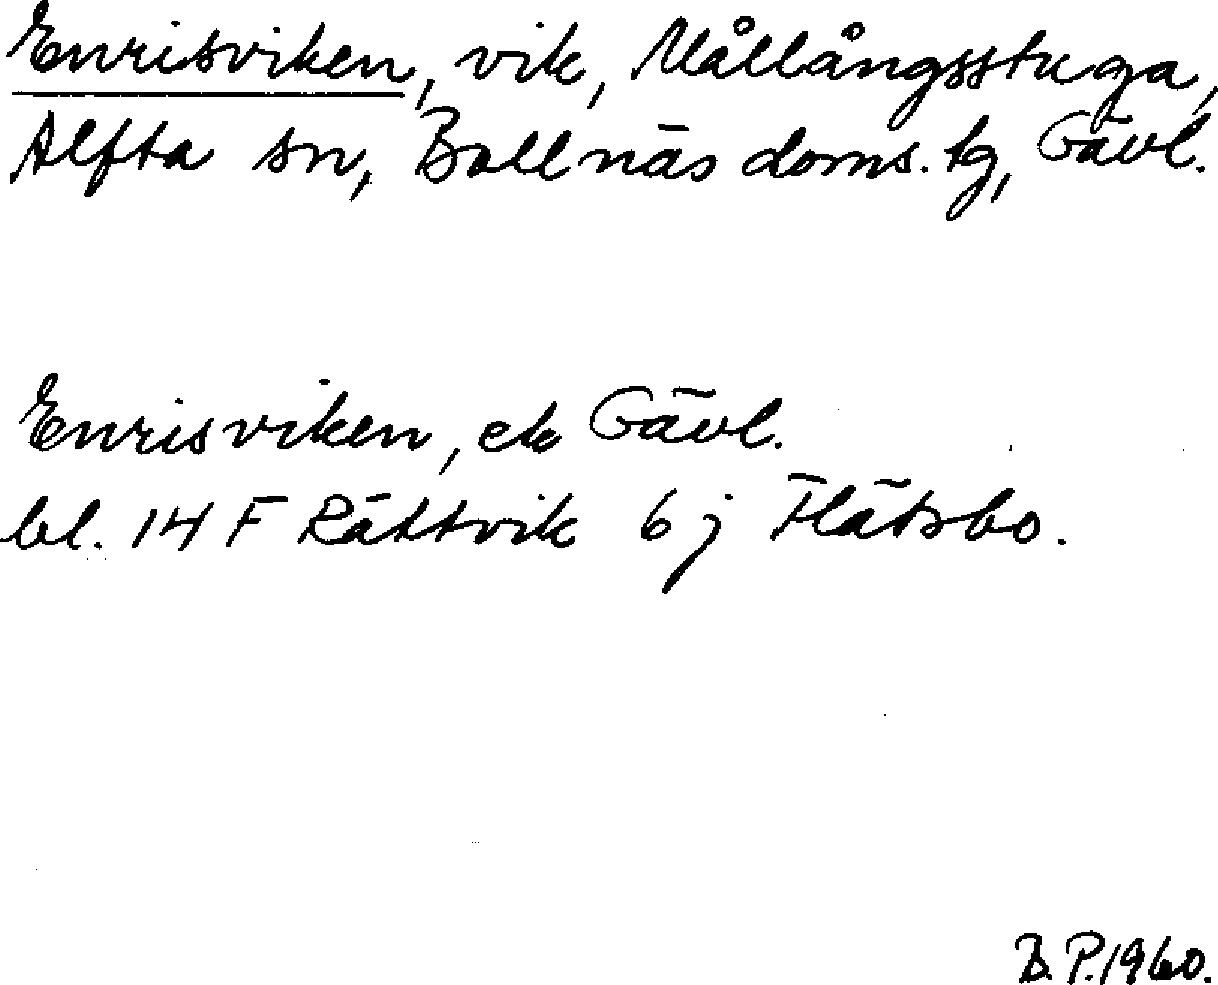 Enrisviken, vik, Mållångsstuga,
Alfta sn, Bollnäs doms. tg, Gävl.
Enrisviken, ek Gävl.
bl. 14 F Rättvik 6 j Flätsbo.
B.P.1960.